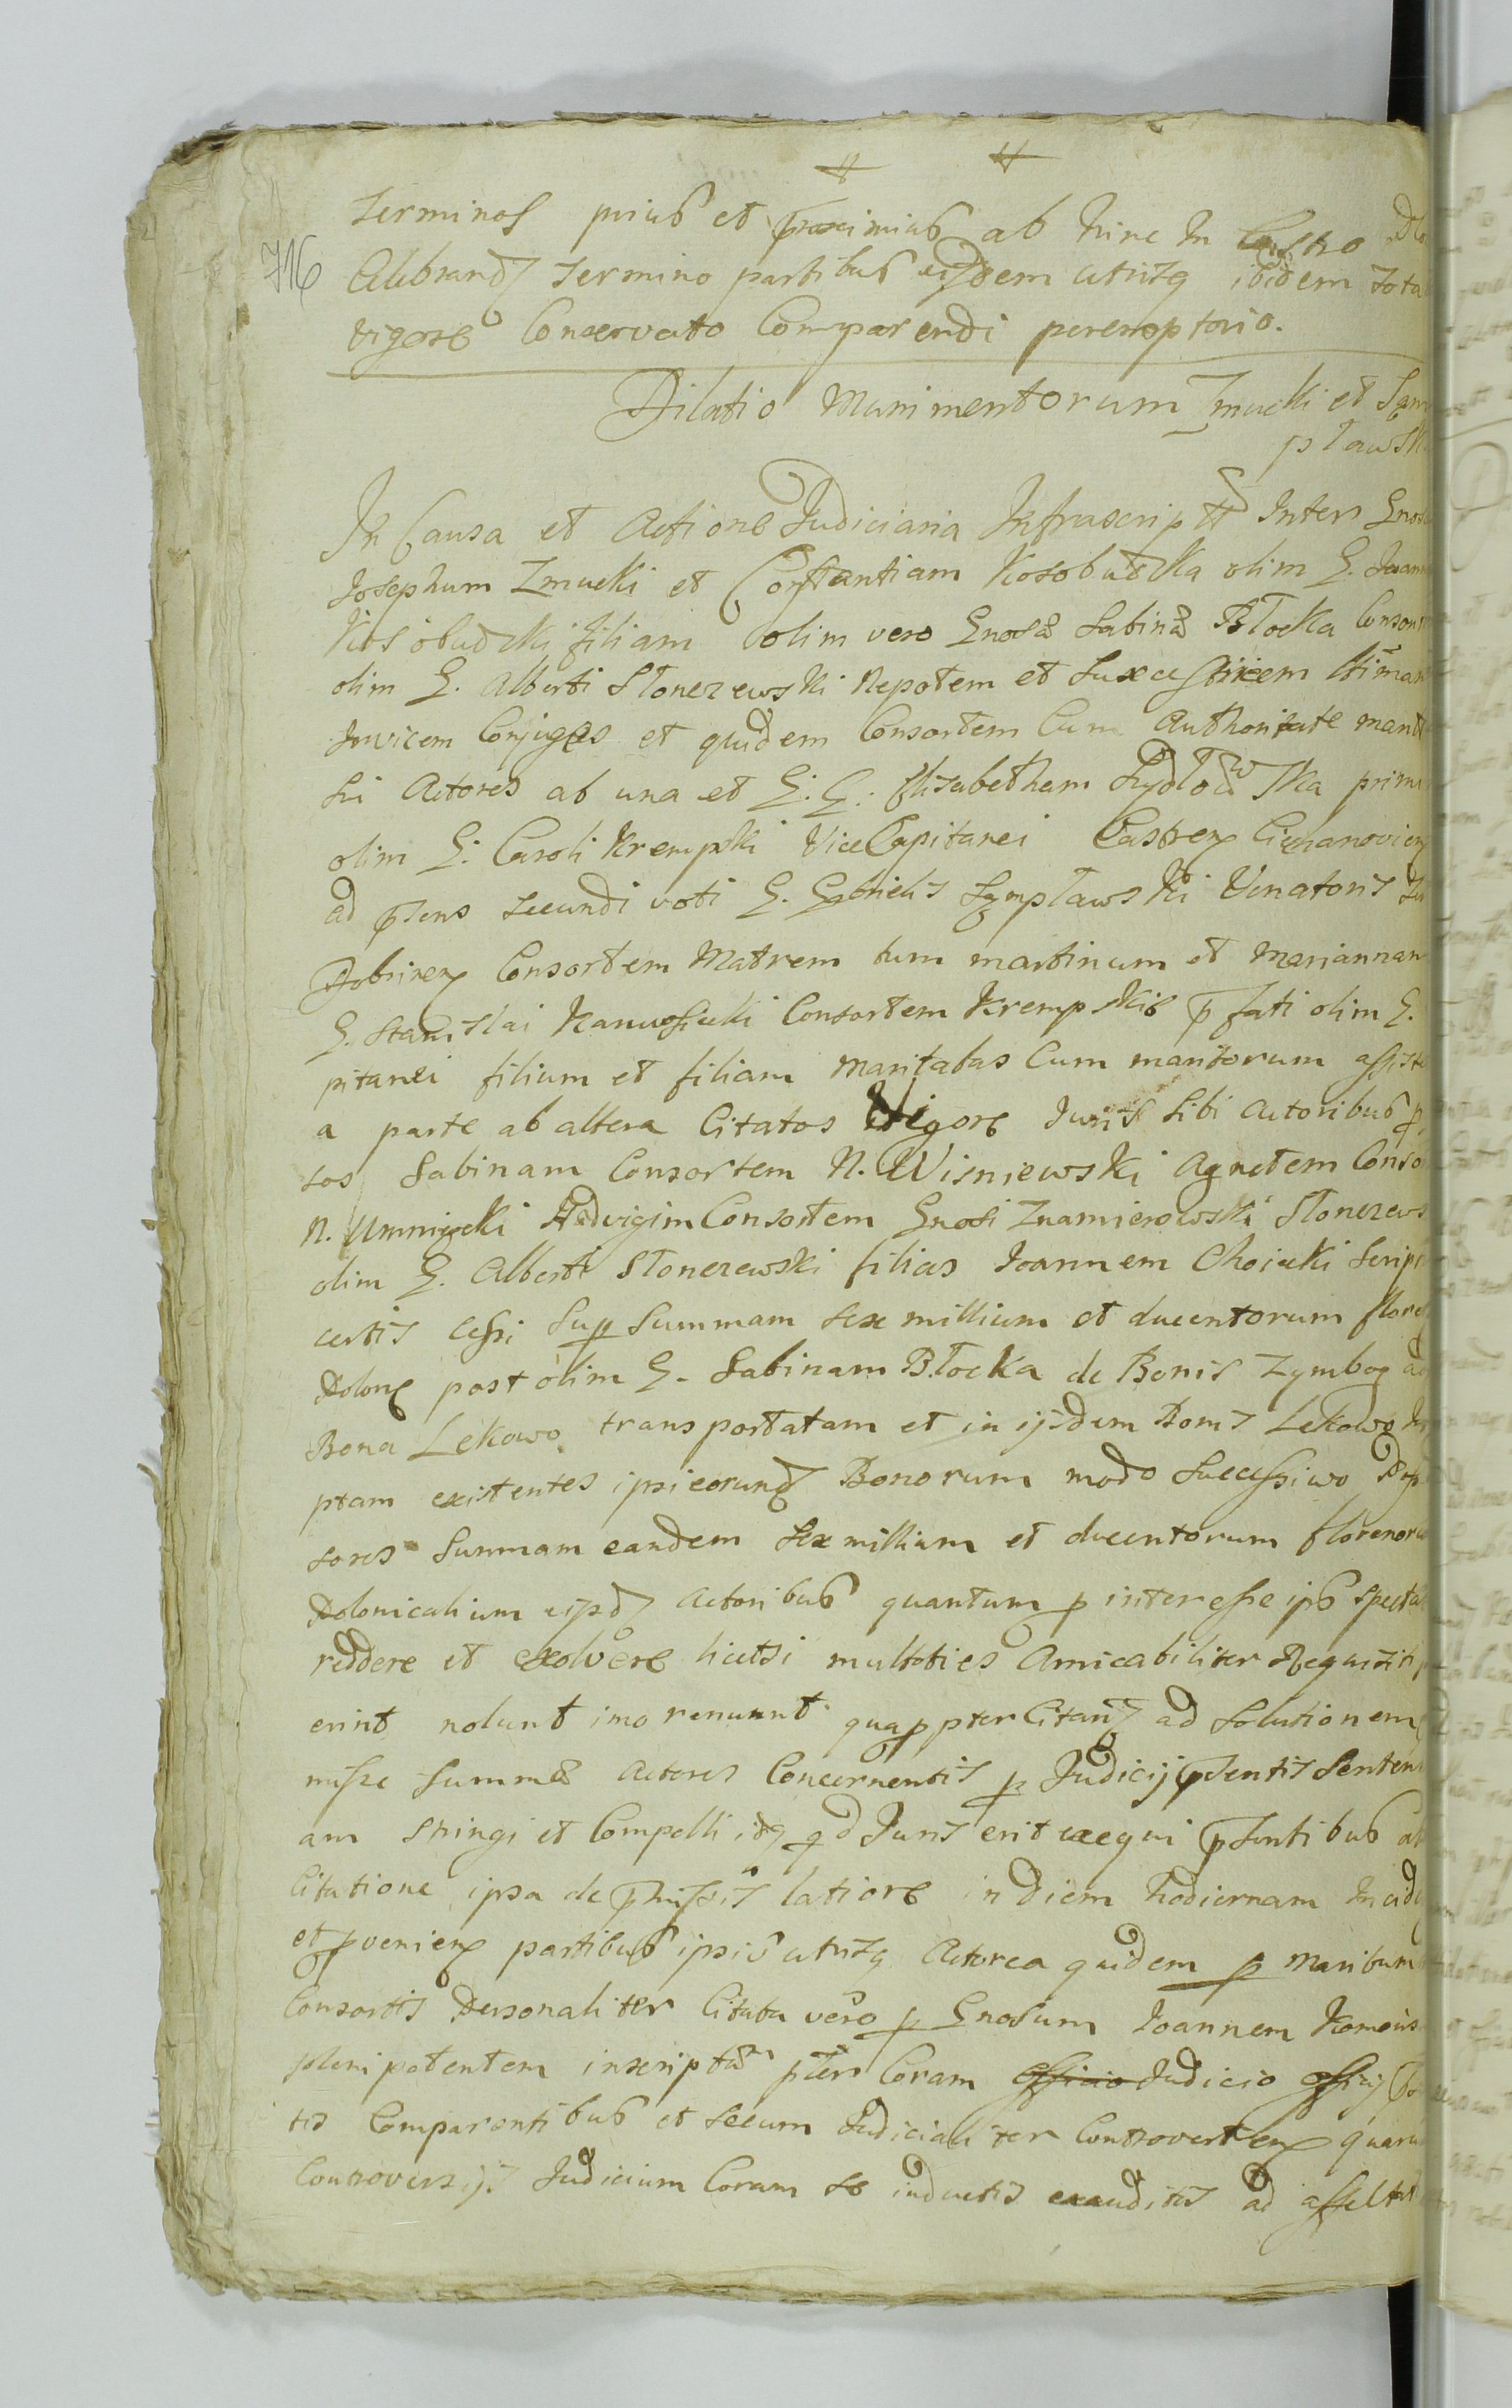 716
terminos prius et proximius ab hinc in Castro
Celebrand termino partibus eisdem utrisq ibidem tota
vigore Conservato Comparendi peremptorio.
Dilatio Munimentorum Zmucki et Szam
pławsk
In Causa et Actione Judiciaria Infrascriptt Inter Gnos
Josephum Zmucki et Constantiam Kosobudzka olim G. Joann
Kosobudzki filiam olim vero Gnosæ Sabinæ Błocka Conson
olim G. Alberti Słonczewski Nepotem et Suxcestricem ltimam
Invicem Conjuges et quidem Consortem Cum Authoritate marit
sui Actores ab una et G. G. Elisabetham Szydłowska primi
olim G. Caroli Krempski ViceCapitanei Castren Ciechanovien
ad psens secundi voti G. Gabrielis Szempławski Venatoris
Dobrinen Consortem Matrem tum Martinum et Mariannam
G. Stanislai Consortem Krempskie pfati olim G.
pitanei filium et filiam maritatas Cum maritorum assiste
a parte ab altera Citatos Vigore Juris sibi Actoribus p
sos Sabinam Consortem N. Wisniewski Agnetem Conso
N. Umniecki Hedvigim Consortem Gnosi Znamierowski Słonczews
olim G. Alberti Słonczewski filias Joannem Choiecki Script
certis Cessi Sup Summam sex millium et ducentorum floren
Polon post olim G. Sabinam Błocka de Bonis Zymbog ad
Bona Lekowo transportatam et in ijsdem Bonis Lekowo
ptam existentes ipsi eorund Bonorum modo Successivo Pos
sores Summam eandem Sex millium et ducentorum florenoru
Polonicalium eisd Actoribus quantum p interesse ips specta
reddere et exolvere licetsi multoties Amicabiliter Requisiti
erint nolunt imo renuunt quappter Citant ad Solutionem
missæ Summæ Actores Concernentis p Judicij psentis Senten
am stringi et Compelli idq qd Juris erit exequi psentibus
Citatione ipsa de pmissis latiore in diem hodiernam Incid
et pvenien partibus ipsis utrisq Actorea quidem p Maritum
Consortis Personaliter Citata vero p Gnosum Joannem
plenipotentem inscriptum pter Coram Officio Judicio Officij
tis Comparentibus et secum Judicialiter Controverten quaru
Controversijs Judicium Coram se inductis exauditis ad affectat